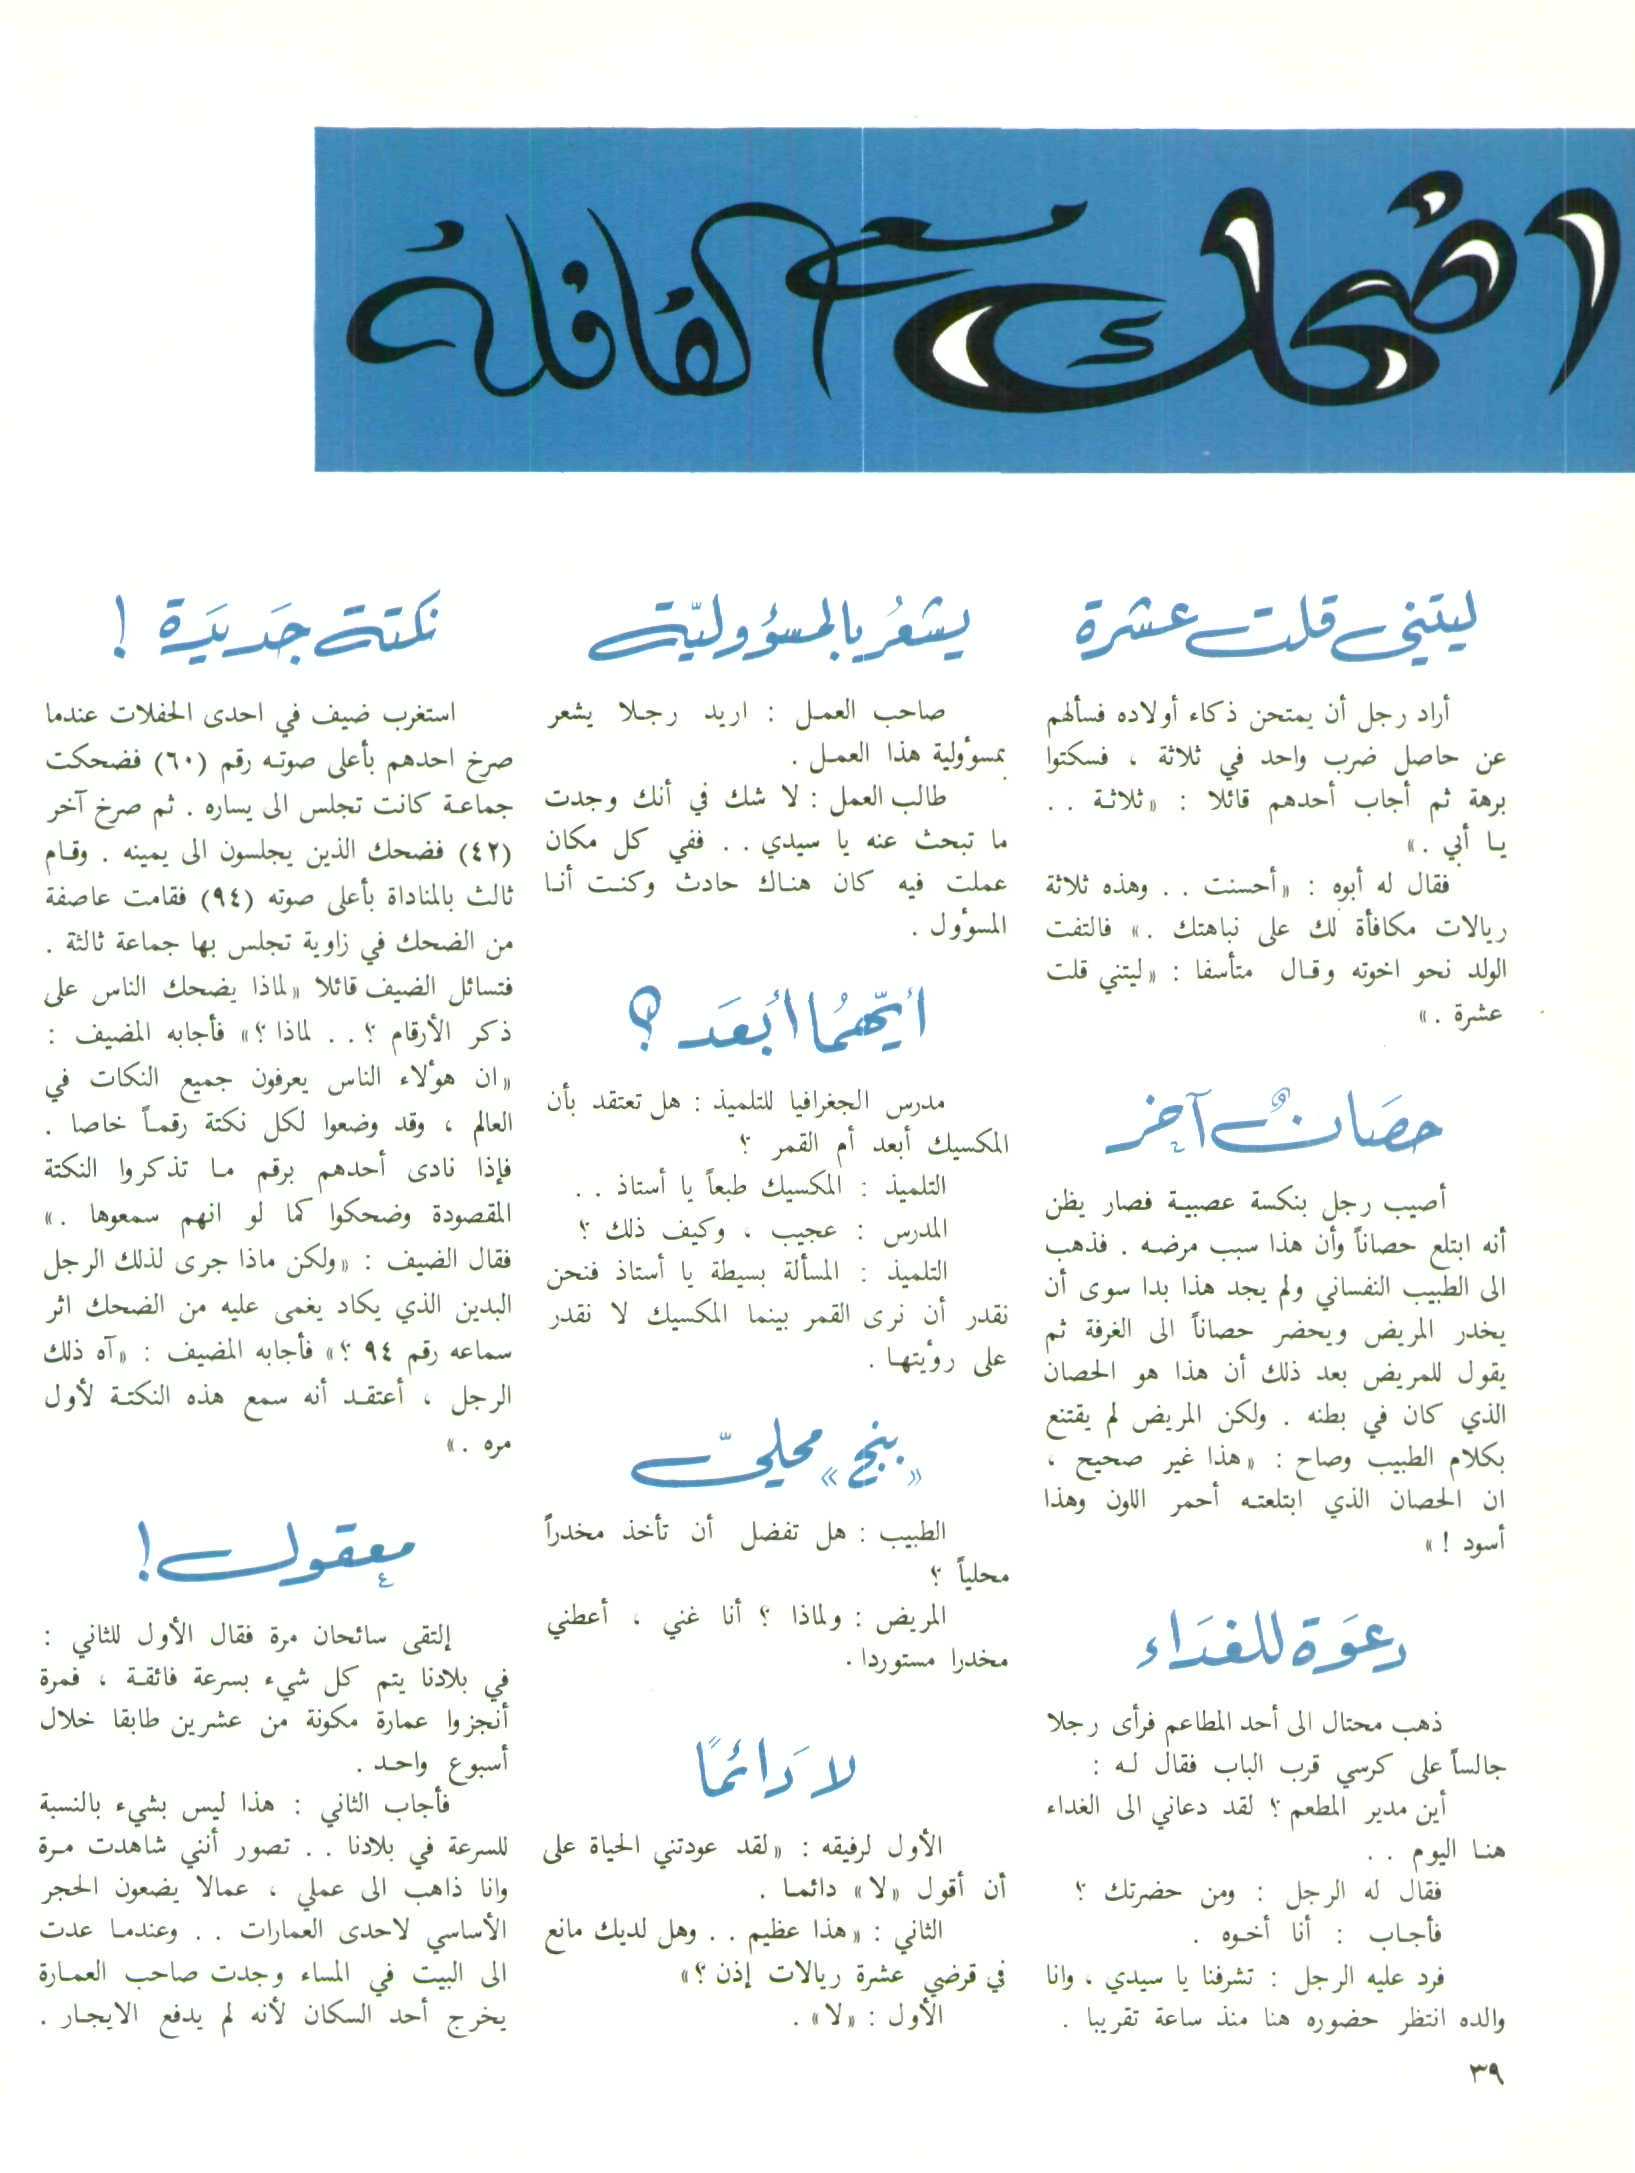 اضحك مع القافلة
ليتني قلت عشرة
أراد رجل أن يمتحن ذكاء أولاده فسألهم
عن حاصل ضرب واحد في ثلاثة ، فسكتوا
برهة ثم أجاب أحدهم قائلا : «ثلاثة . .
يا أبي .»
فقال له أبوه : «أحسنت . . وهذه ثلاثة
ريالات مكافأة لك على نباهتك .» فالتفت
الولد نحو اخوته وقال متأسفا : «ليتني قلت
عشرة .»
حصان آخر
أصيب رجل بنكسة عصبية فصار يظن
أنه ابتلع حصاناً وأن هذا سبب مرضه . فذهب
الى الطبيب النفساني ولم يجد هذا بدا سوى أن
يخدر المريض ويحضر حصاناً الى الغرفة ثم
يقول للمريض بعد ذلك أن هذا هو الحصان
الذي كان في بطنه . ولكن المريض لم يقتنع
بكلام الطبيب وصاح : «هذا غير صحيح ،
ان الحصان الذي ابتلعته أحمر اللون وهذا
أسود ! »
دعوة للغداء
ذهب محتال الى أحد المطاعم فرأى رجلا
جالساً على كرسي قرب الباب فقال له :
أين مدير المطعم ؟ لقد دعاني الى الغداء
هنا اليوم . .
فقال له الرجل : ومن حضرتك ؟
فأجاب : أنا أخوه .
فرد عليه الرجل : تشرفنا يا سيدي ، وانا
والده انتظر حضوره هنا منذ ساعة تقريبا .
يشعر بالمسؤوليّة
صاحب العمل : اريد رجلا يشعر
بمسؤولية هذا العمل .
طالب العمل : لا شك في أنك وجدت
ما تبحث عنه يا سيدي . . ففي كل مكان
عملت فيه كان هناك حادث وكنت أنا
المسؤول .
أيّهما أبعد ؟
مدرس الجغرافيا للتلميذ : هل تعتقد بأن
المكسيك أبعد أم القمر ؟
التلميذ : المكسيك طبعاً يا أستاذ . .
المدرس : عجيب ، وكيف ذلك ؟
التلميذ : المسألة بسيطة يا أستاذ فنحن
نقدر أن نرى القمر بينما المكسيك لا نقدر
على رؤيتها .
«بنج» محليّ
الطبيب : هل تفضل أن تأخذ مخدراً
محلياً ؟
المريض : ولماذا ؟ أنا غني ، أعطني
مخدرا مستوردا .
لا دائمًا
الأول لرفيقه : «لقد عودتني الحياة على
أن أقول «لا» دائما .
الثاني : «هذا عظيم . . وهل لديك مانع
في قرضي عشرة ريالات إذن ؟»
الأول : «لا» .
نكتة جديدة !
استغرب ضيف في احدى الحفلات عندما
صرخ احدهم بأعلى صوته رقم (٦٠) فضحكت
جماعة كانت تجلس الى يساره . ثم صرخ آخر
(٤٢) فضحك الذين يجلسون الى يمينه . وقام
ثالث بالمناداة بأعلى صوته (٩٤) فقامت عاصفة
من الضحك في زاوية تجلس بها جماعة ثالثة .
فتسائل الضيف قائلا «لماذا يضحك الناس على
ذكر الأرقام ؟ . . لماذا ؟» فأجابه المضيف :
«ان هوٴلاء الناس يعرفون جميع النكات في
العالم ، وقد وضعوا لكل نكتة رقماً خاصا .
فإذا نادى أحدهم برقم ما تذكروا النكتة
المقصودة وضحكوا كما لو انهم سمعوها .»
فقال الضيف : «ولكن ماذا جرى لذلك الرجل
البدين الذي يكاد يغمى عليه من الضحك اثر
سماعه رقم ٩٤ ؟» فأجابه المضيف : «آه ذلك
الرجل ، أعتقد أنه سمع هذه النكتة لأول
مره .»
معقول !
إلتقى سائحان مرة فقال الأول للثاني :
في بلادنا يتم كل شيء بسرعة فائقة ، فمرة
أنجزوا عمارة مكونة من عشرين طابقا خلال
أسبوع واحد .
فأجاب الثاني : هذا ليس بشيء بالنسبة
للسرعة في بلادنا . . تصور أنني شاهدت مرة
وانا ذاهب الى عملي ، عمالا يضعون الحجر
الأساسي لاحدى العمارات . . وعندما عدت
الى البيت في المساء وجدت صاحب العمارة
يخرج أحد السكان لأنه لم يدفع الايجار .
٣٩